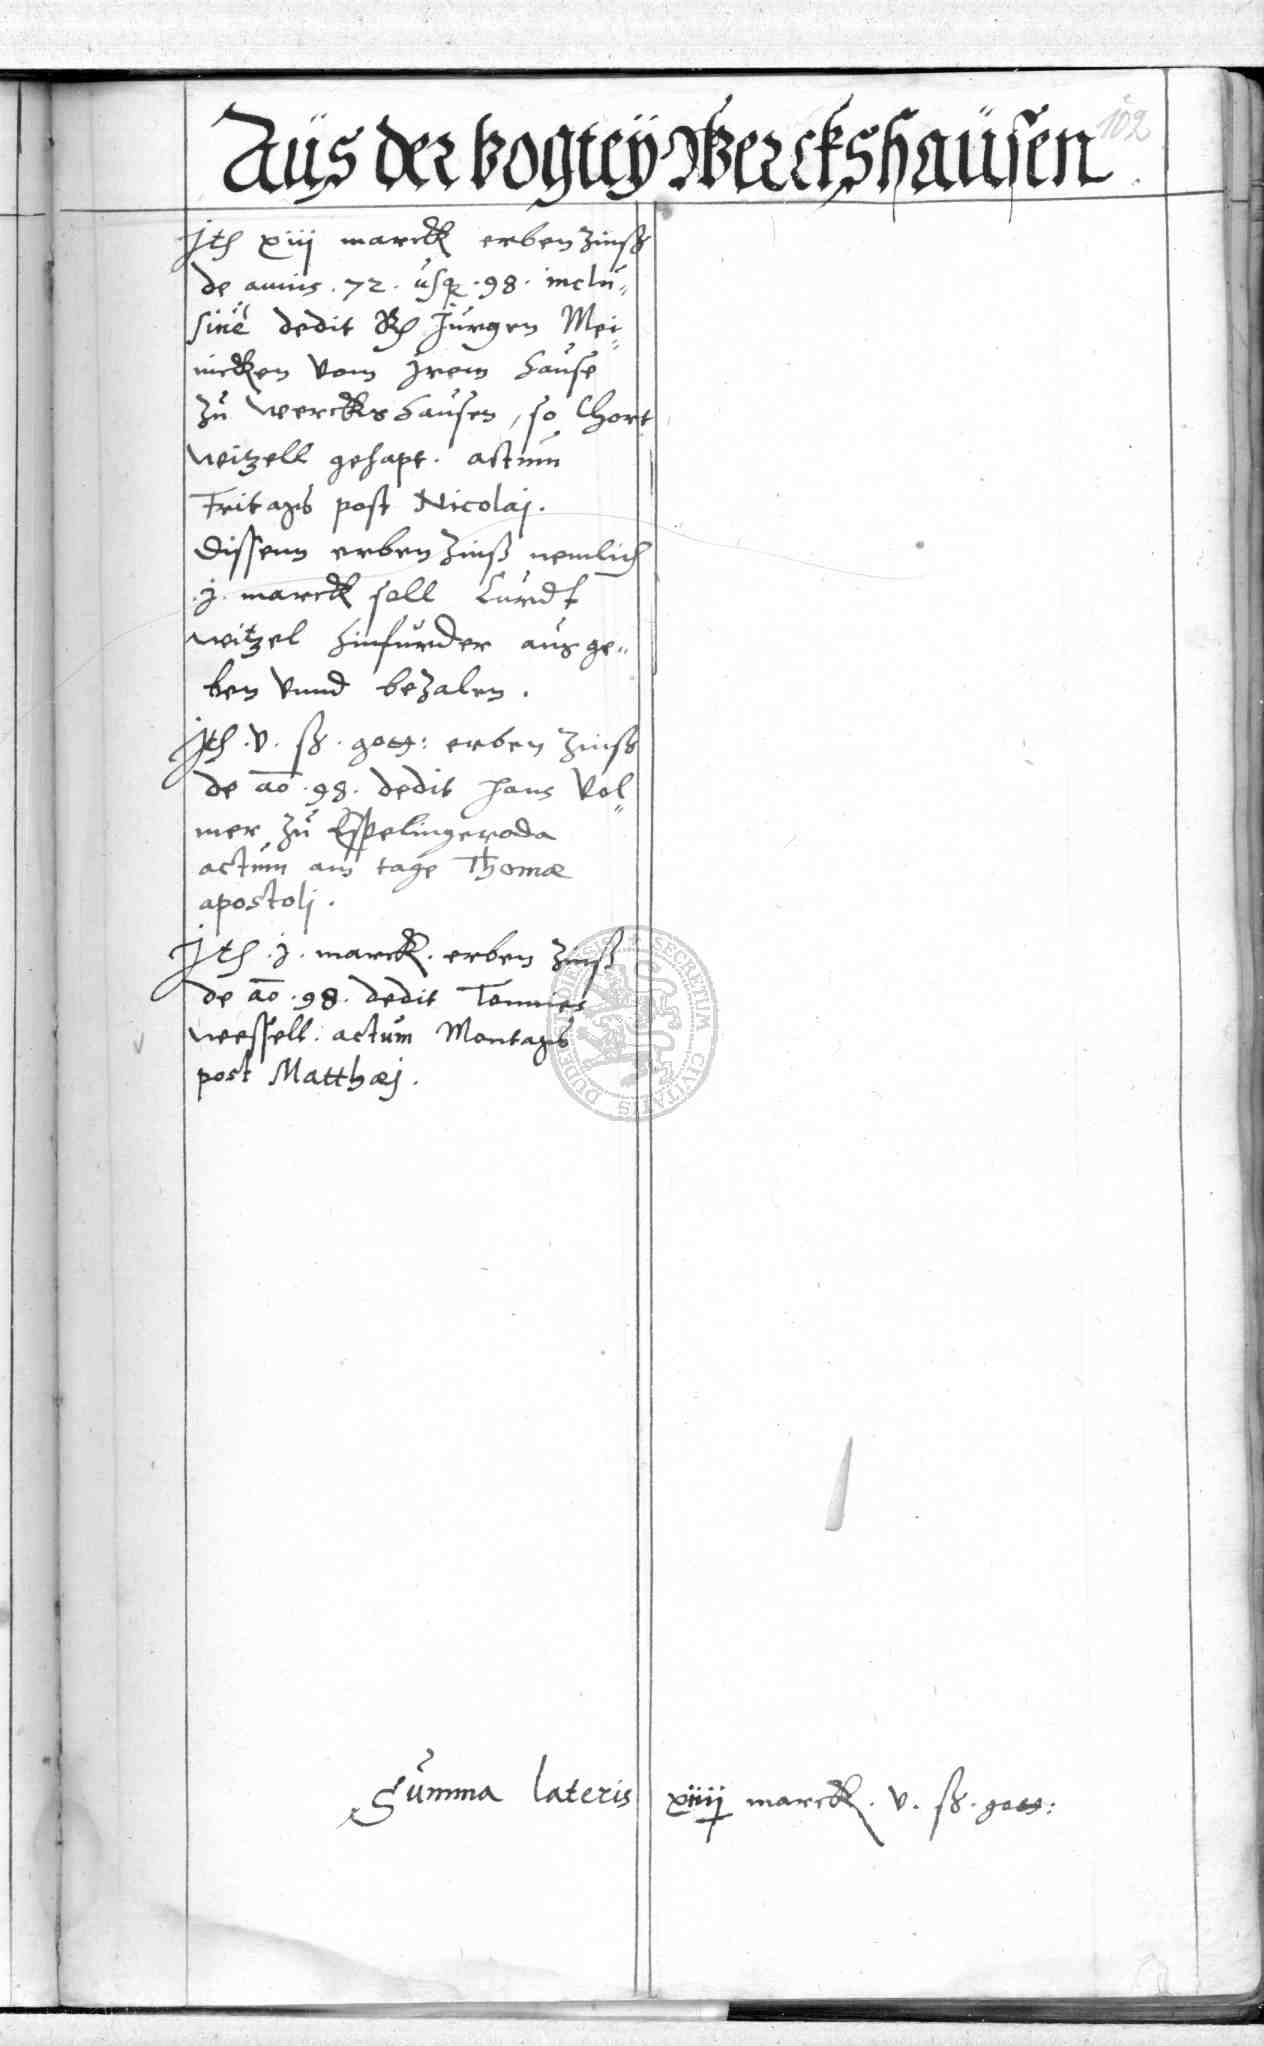 Aus der Vogtey Werckshausen
102
Jth xiij marck erben Zinß
de annis . 72 . usq . 98 . inclu„
sive dedit Jurgen Mei„
nicken vom jrem hause
zu Werckshausen, so Chort
Witzell gehapt . actum
Fritags post Nicolaj .
Dissenn erben Zinß nemlich
. j . marck soll Curdt
Witzel hinfurder ausge„
ben Vnnd bezalen .
Jth . v . ß . gott : erben Zinß
de ao . 98 . dedit Hans Vol„
mer zu Espelingeroda
actum am tage Thomæ
apostolj .
Jth . j . marck . erben Zinß
de ao . 98 . dedit Tonnies
Wessell . actum Montags
post Matthæj .
SECRETUM CIVITALIS DUDERSTODIENSIS
Summa lateris xiiij marck . v . ß . gott :